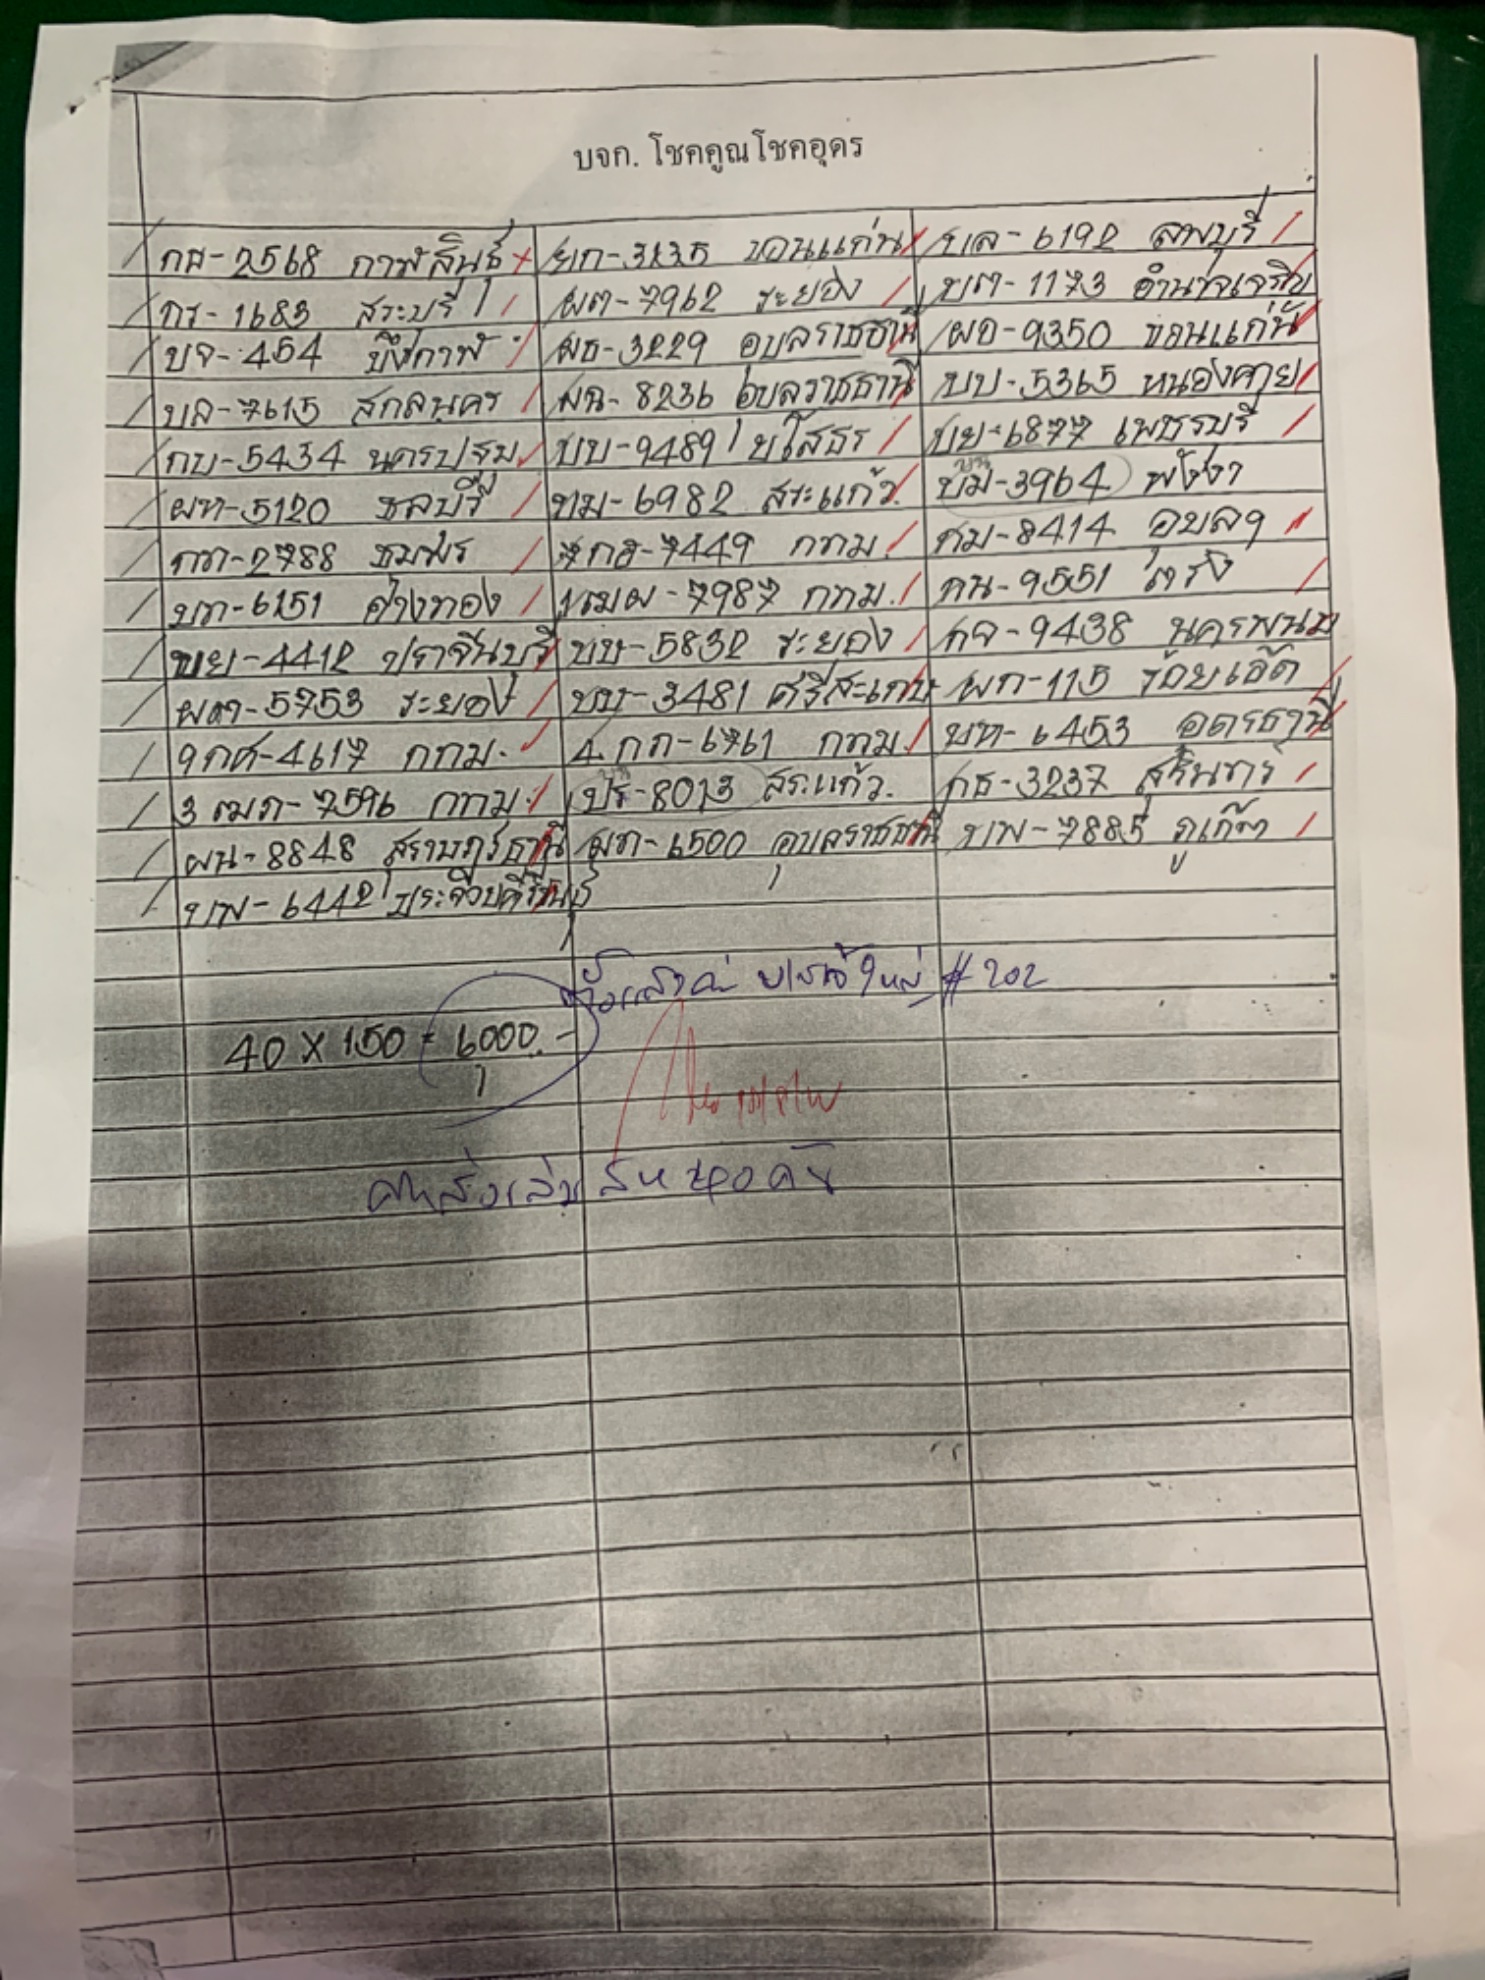 บจก. โชคคูณโชคอุดร
กส-2568 กาฬสินธุ์ ยก-3135 ขอนแก่น บล-6192 ลพบุรี
กร-1683 สระบุรี ผต-7962 ระยอง บต-1173 อำนาจเจริญ
บจ-454 บึงกาฬ ผธ-3229 อุบลราชธานี ผอ-9350 ขอนแก่น
บล-7615 สกลนคร ผฉ-8236 อุบลราชธานี บบ-5365 หนองคาย
กบ-5434 นครปฐม บบ-9489 ยโสธร บย-6877 เพชรบุรี
ผห-5120 ชลบุรี บม-6982 สระแก้ว บม-3964 พังงา
กต-2788 ชุมพร 7กอ-7449 กทม. กม-8414 อุบลฯ
บท-6151 อ่างทอง 1ฒผ-7987 กทม. กน-9551 ตรัง
บย-4412 ปราจีนบุรี บบ-5832 ระยอง กจ-9438 นครพนม
ผต-5753 ระยอง บบ-3481 ศรีสะเกษ ผก-115 ร้อยเอ็ด
9กศ-4617 กทม. 4กภ-6761 กทม. บห-6453 อุดรธานี
3ฒภ-7596 กทม. บร-8013 สระแก้ว กธ-3237 สุรินทร์
ผน-8848 สุราษฎร์ธานี ผท-6500 อุบลราชธานี บพ-7885 ภูเก็ต
บพ-6442 ประจวบคีรีขันธ์
#202
40 X 150 = 6000.-